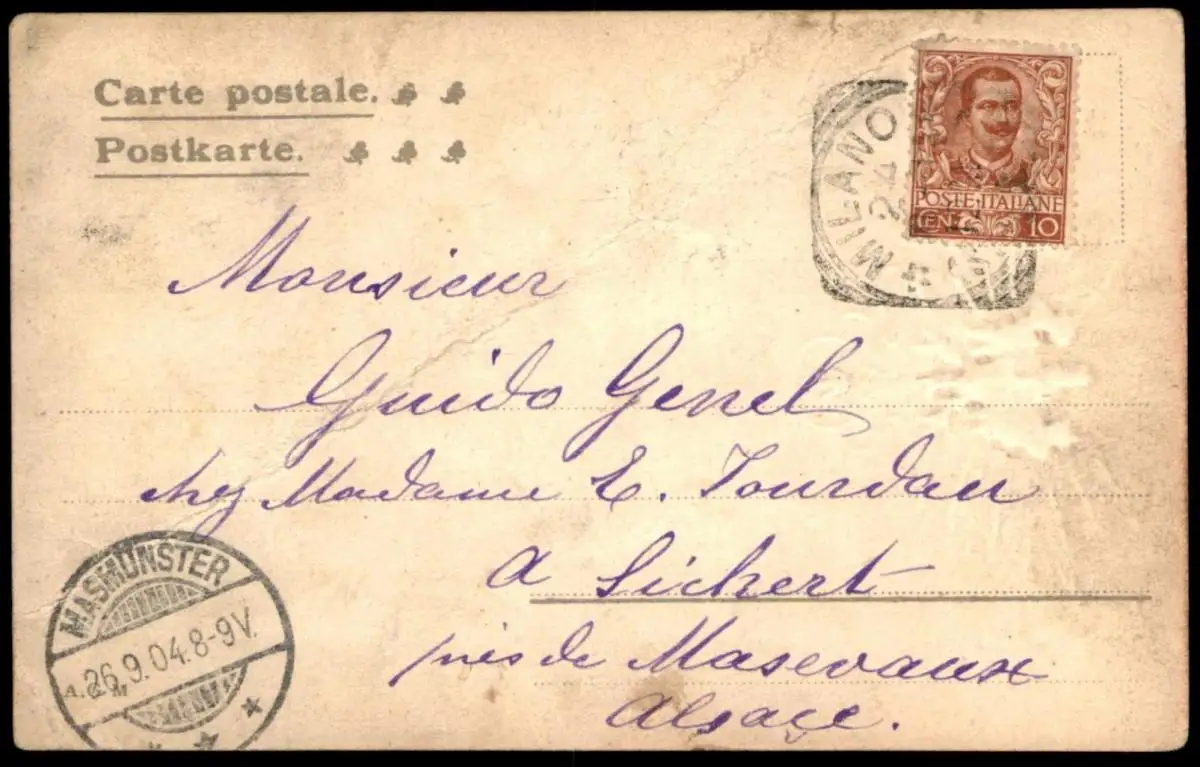 Carte postale.
Postkarte.
MILANO
24
POSTE ITALIANE
CEN. 10
Monsieur
Guido Genel
chez Madame E. Jourdan
a Sickert
près de Masevaux
Alsace.
MASMÜNSTER
26.9.04.8-9V.
A. G. M